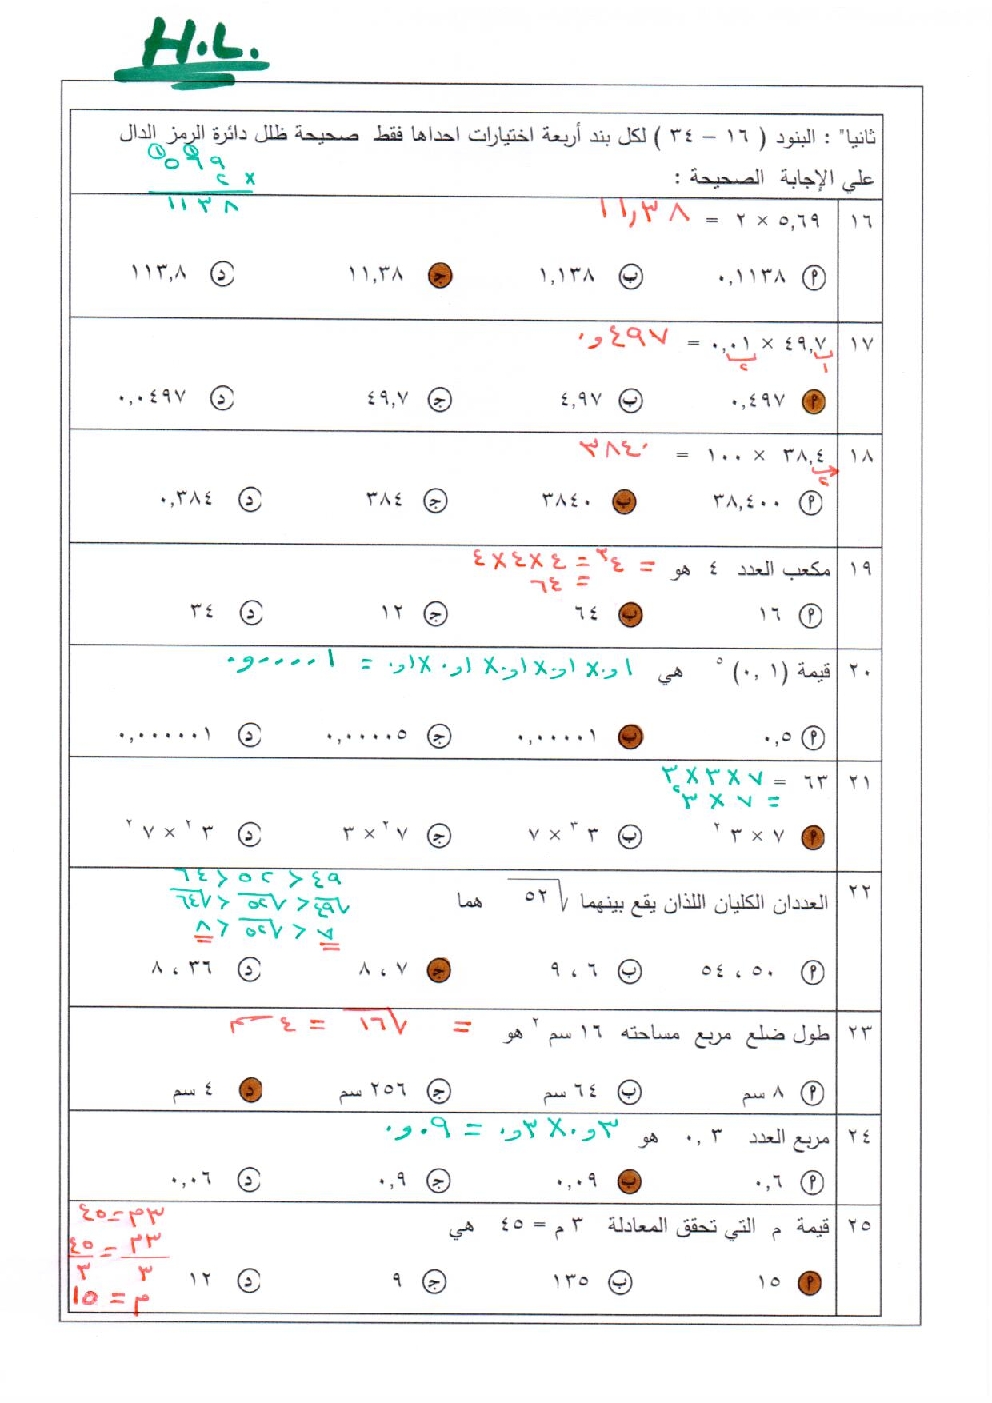 H.L.
ثانيا" : البنود ( ١٦ – ٣٤ ) لكل بند أربعة اختيارات احداها فقط صحيحة ظلل دائرة الرمز الدال
علي الإجابة الصحيحة :
٢ ×
١١٣٨
١٦ ٥,٦٩ × ٢ = ١١,٣٨
أ ٠,١١٣٨ ب ١,١٣٨ ج ١١,٣٨ د ١١٣,٨
١٧ ٤٩,٧ × ٠,٠١ = ٠,٤٩٧
١ ٢
أ ٠,٤٩٧ ب ٤,٩٧ ج ٤٩,٧ د ٠,٠٤٩٧
١٨ ٣٨,٤ × ١٠٠ = ٣٨٤٠
٢
أ ٣٨,٤٠٠ ب ٣٨٤٠ ج ٣٨٤ د ٠,٣٨٤
١٩ مكعب العدد ٤ هو = ٤³ = ٤×٤×٤
= ٦٤
أ ١٦ ب ٦٤ ج ١٢ د ٣٤
٢٠ قيمة (٠,١)⁵ هي ٠,١×٠,١×٠,١×٠,١×٠,١ = ٠,٠٠٠٠١
أ ٠,٥ ب ٠,٠٠٠٠١ ج ٠,٠٠٠٠٥ د ٠,٠٠٠٠٠١
٢١ ٦٣ = ٧×٣×٣
= ٧ × ٣²
أ ٧ × ٣² ب ٣³ × ٧ ج ٧² × ٣ د ٣² × ٧²
٤٩ < ٥٢ < ٦٤
٢٢ العددان الكليان اللذان يقع بينهما √٥٢ هما √٤٩ < √٥٢ < √٦٤
٧ < √٥٢ < ٨
أ ٥٠ ، ٥٤ ب ٦ ، ٩ ج ٧ ، ٨ د ٣٦ ، ٨
٢٣ طول ضلع مربع مساحته ١٦ سم² هو = √١٦ = ٤ سم
أ ٨ سم ب ٦٤ سم ج ٢٥٦ سم د ٤ سم
٢٤ مربع العدد ٠,٣ هو ٠,٣×٠,٣ = ٠,٠٩
أ ٠,٦ ب ٠,٠٩ ج ٠,٩ د ٠,٠٦
٢٥ قيمة م التي تحقق المعادلة ٣ م = ٤٥ هي
أ ١٥ ب ١٣٥ ج ٩ د ١٢
٣م = ٤٥
٣م/٣ = ٤٥/٣
م = ١٥